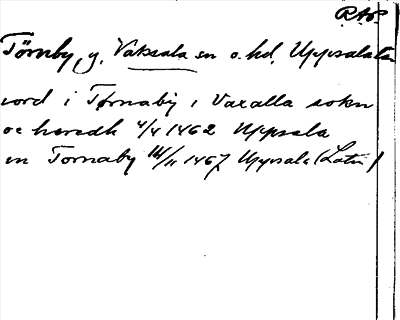 RAp.
Törnby, g, Vaksala sn o. hd, Uppsala län
iord i Tørnaby i Vaxalla sokn
oc hæredh 4/4 1462 Uppsala
in Tornaby 14/11 1467 Uppsala (Latin)